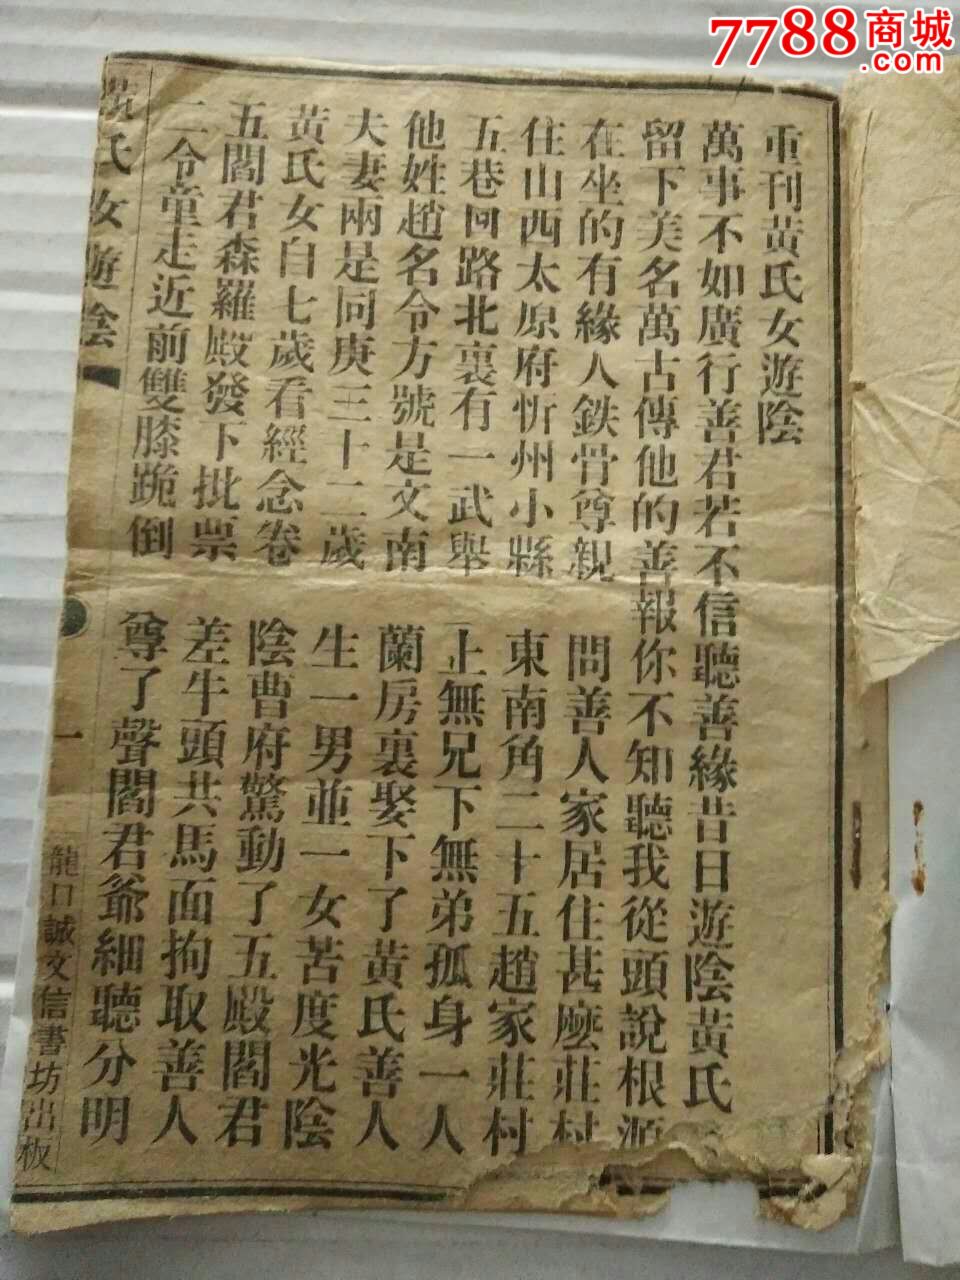 7788商城
.com
重刊黃氏女遊陰
萬事不如廣行善君若不信聽善緣昔日遊陰黃氏
留下美名萬古傳他的善報你不知聽我從頭說根源
在坐的有緣人鉄骨尊親 問善人家居住甚麽莊村
住山西太原府忻州小縣 東南角二十五趙家莊村
五巷回路北裏有一武舉 上無兄下無弟孤身一人
他姓趙名令方號是文南 蘭房裏娶下了黃氏善人
夫妻兩是同庚三十二歲 生一男並一女苦度光陰
黃氏女自七歲看經念卷 陰曹府驚動了五殿閻君
五閻君森羅殿發下批票 差牛頭共馬面拘取善人
二令童走近前雙膝跪倒 尊了聲閻君爺細聽分明
黃氏女遊陰 一 龍口誠文信書坊出板